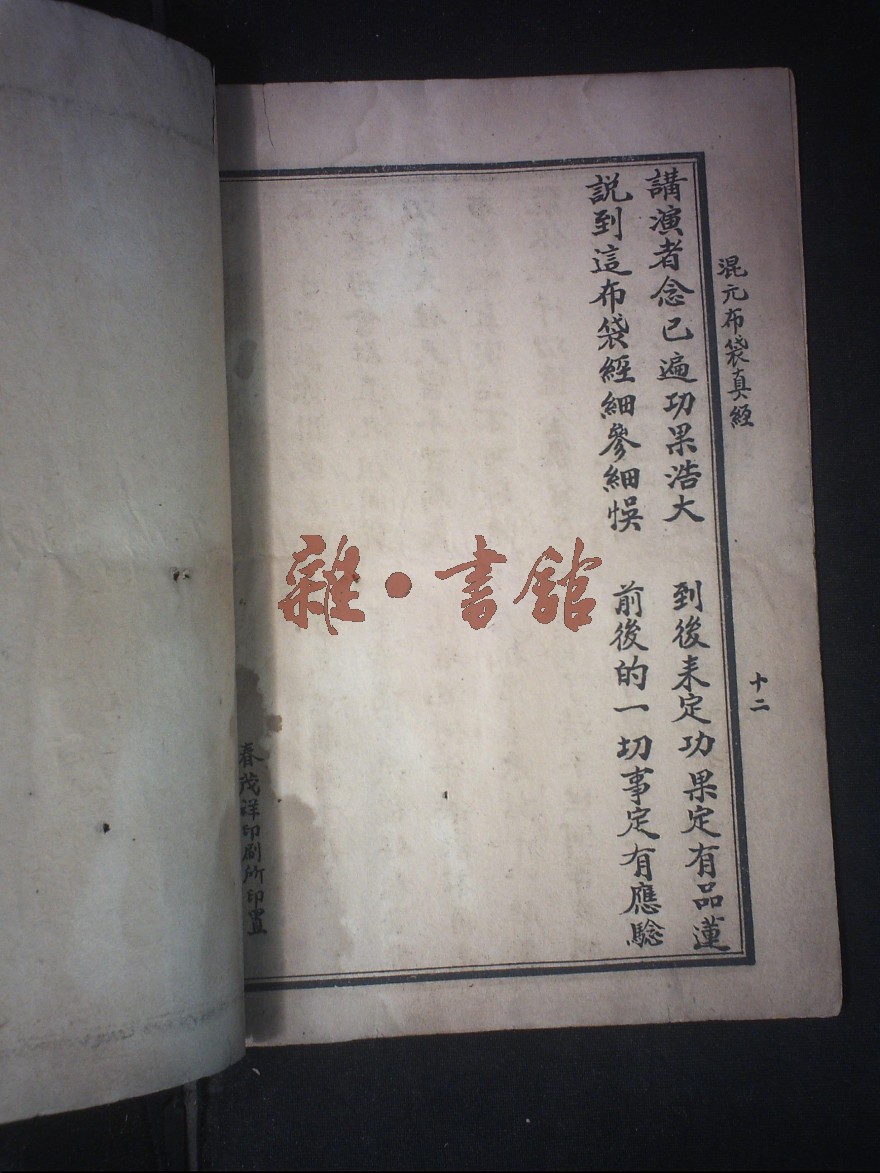 混元布袋真經
十二
講演者念已遍功果浩大　到後来定功果定有品蓮
説到這布袋經細參細悮　前後的一切事定有應驗
春茂祥印刷所印置
雜·書館